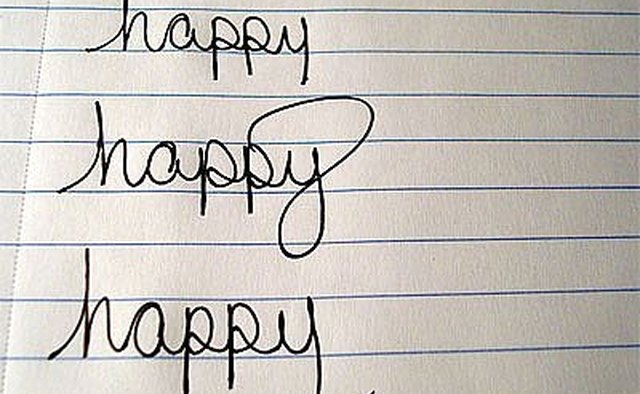 happy
happy
happy